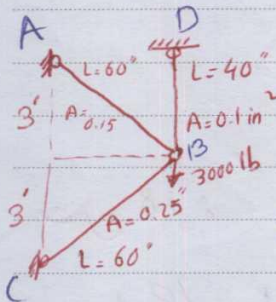 A
D
L=60"
L=40"
3'
A=
0.15
A=0.1 in²
B
3000 lb
3'
A=0.25"
L=60"
C